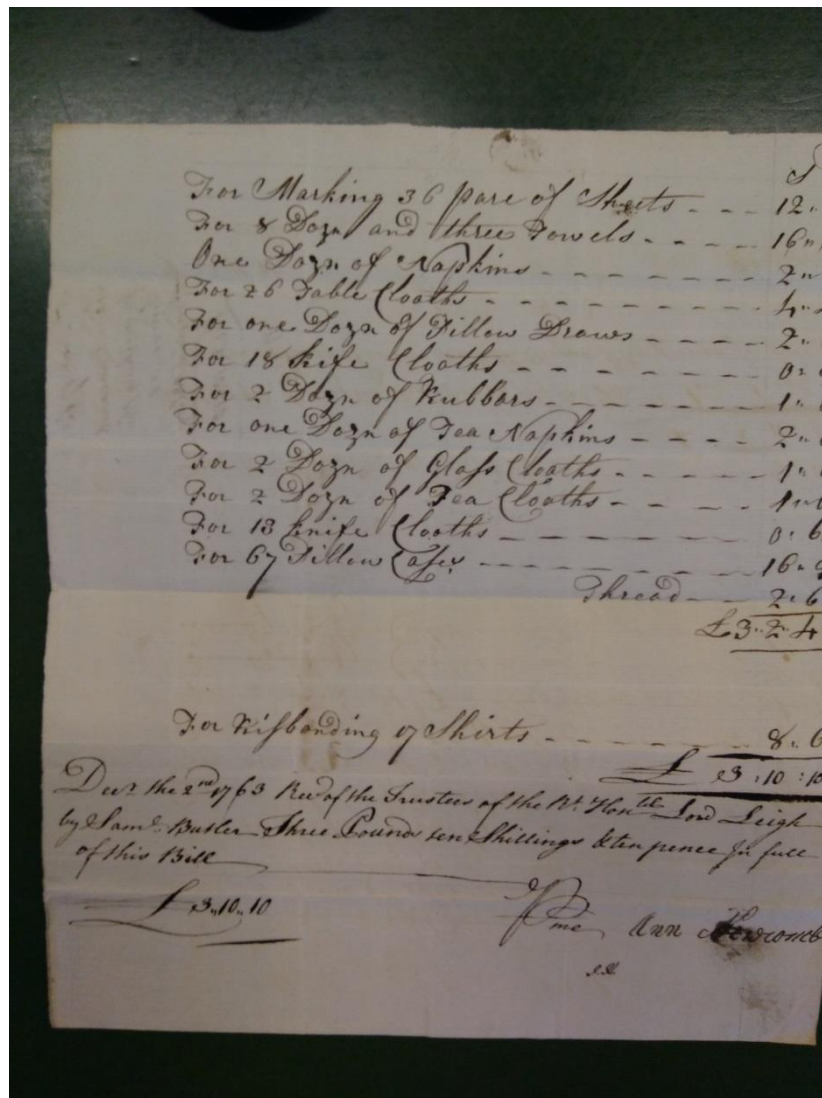 S
For Marking 36 pare of Sheets - - - 12"
For 8 Dozn and three Towels - - - - 16"
One Dozn of Napkins - - - - - - - - 2"
For 26 Table Cloaths - - - - - - - 4"
For one Dozn of Pillow Draws - - - - 2"
For 18 kife Cloaths - - - - - - - 0"
For 2 Dozn of Rubbars - - - - - - 1"
For one Dozn of Tea Napkins - - - - 2"
For 2 Dozn of Glass Cloaths - - - - 1"
For 2 Dozn of Tea Cloaths - - - - 1"
For 13 knife Cloaths - - - - - - - 0" 6
For 67 Pillow Cases - - - - - - - - 16" 9
Thread - - 2" 6
£3" 2" 4
For Risbanding 17 Shirts - - - - - - - 8" 6
£ 3 : 10 : 10
Decr. the 2nd 1763 Recd of the Trustees of the Rt. Honble Lord Leigh
by Saml. Butler Three Pounds ten Shillings & ten pence In full
of this Bill
£ 3,,10,,10
P me Ann Newcomb